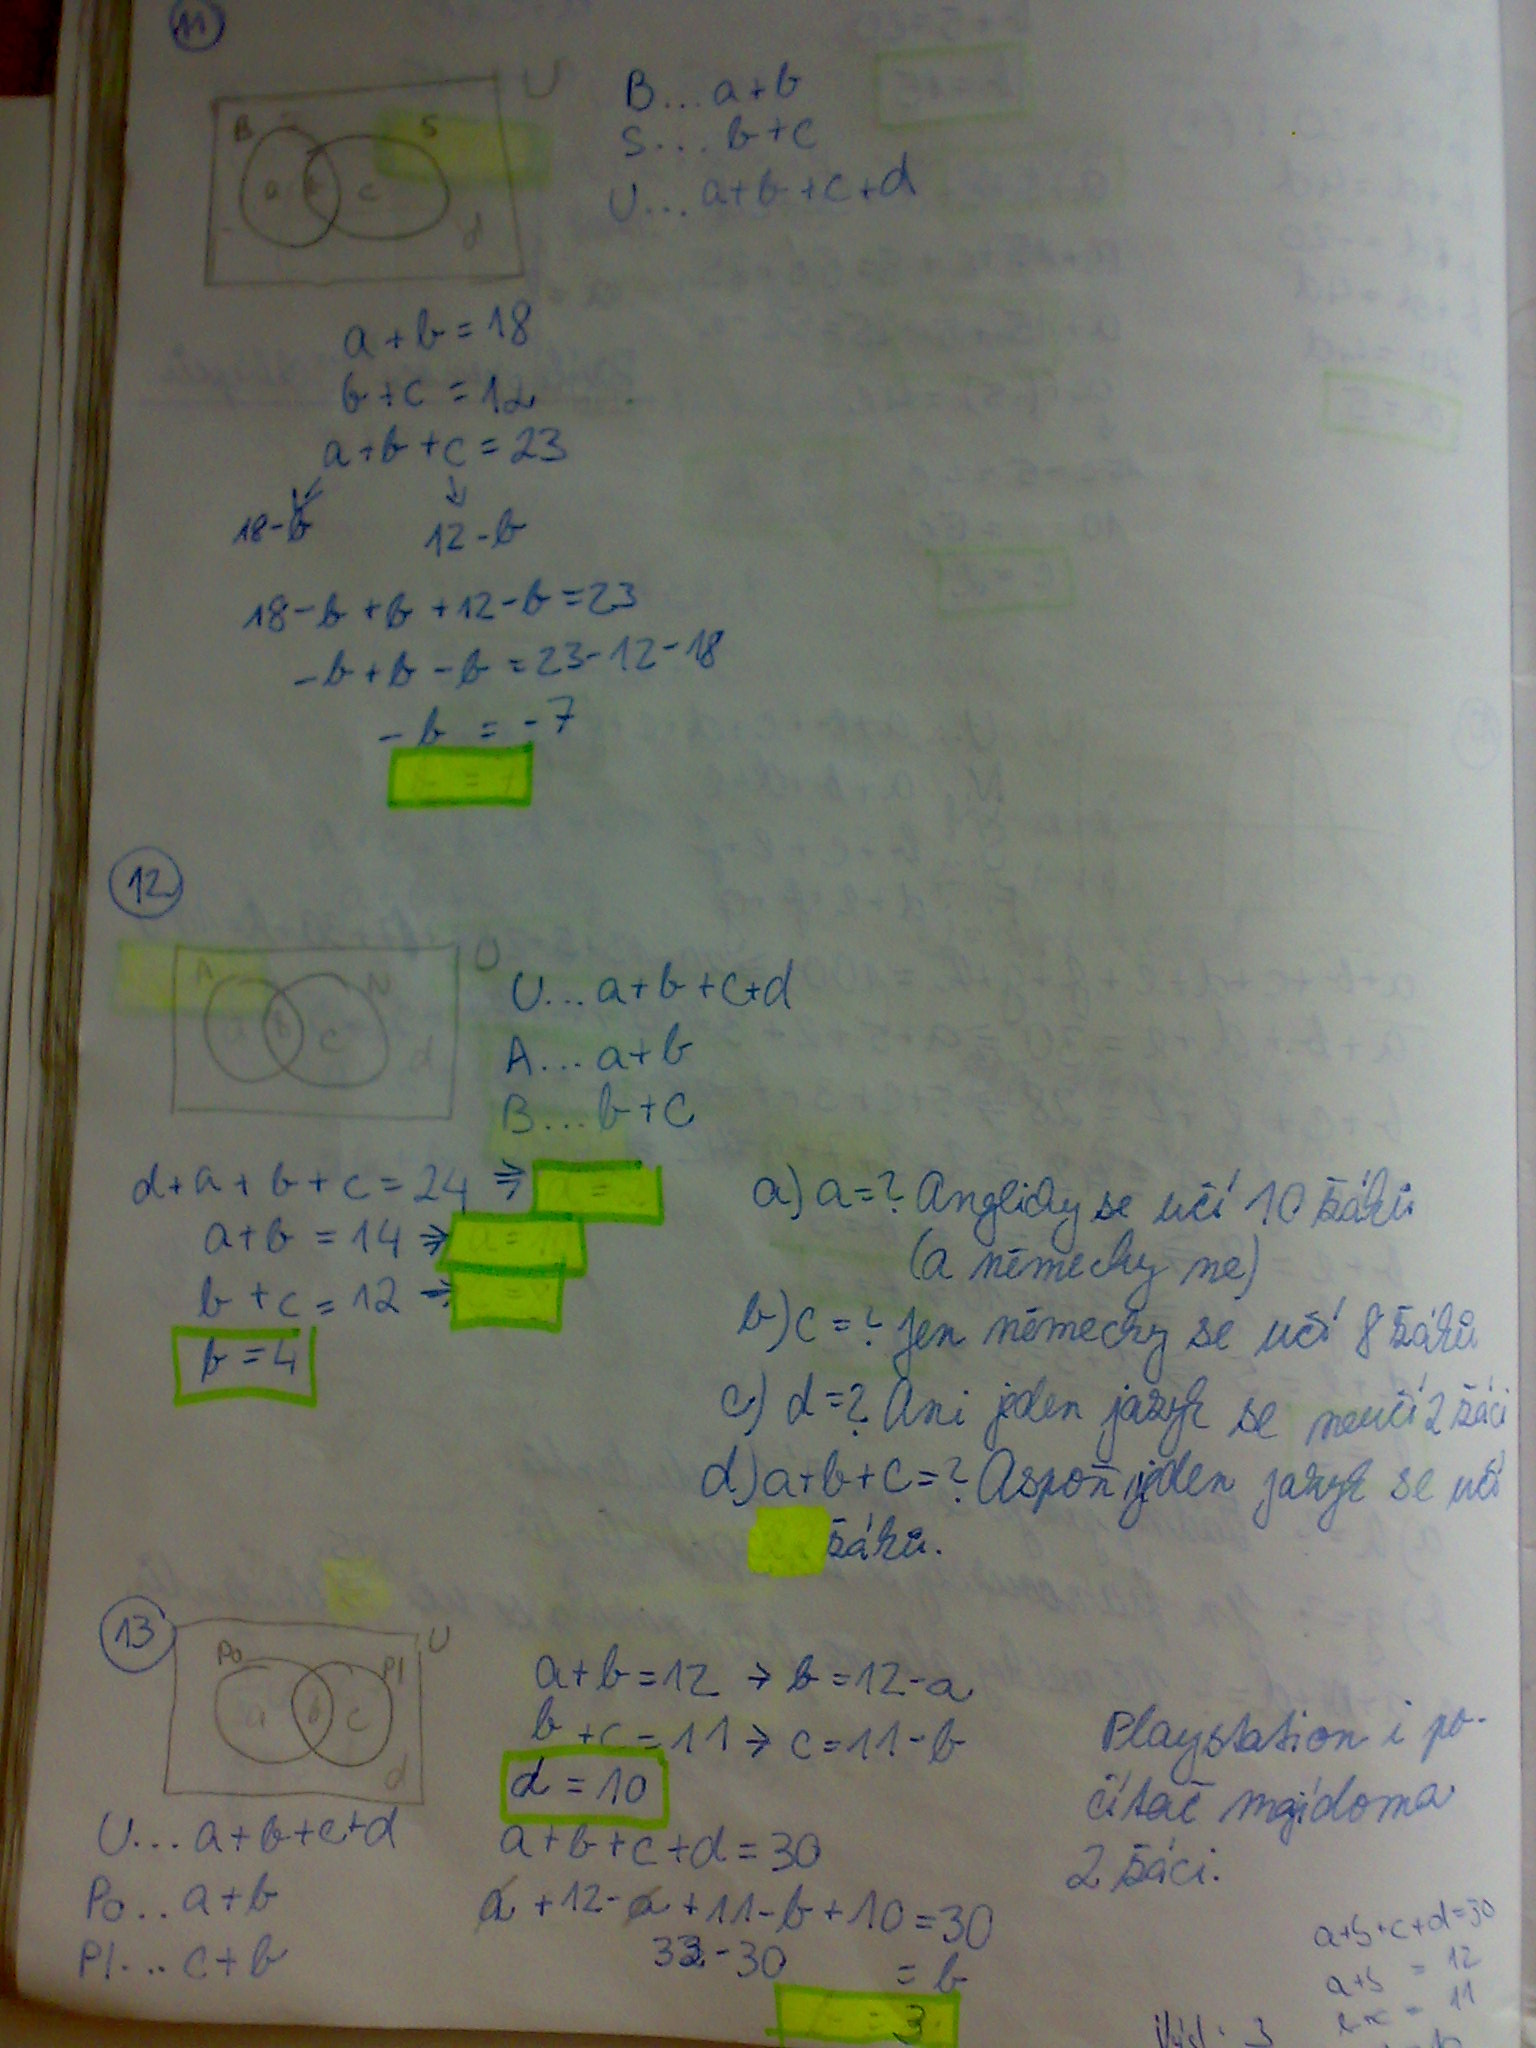 11
U
B S
a b c
d
B...a+b
S...b+c
U...a+b+c+d
a+b=18
b+c=12
a+b+c=23
18-b 12-b
18-b+b+12-b=23
-b+b-b=23-12-18
-b=-7
12
U
A N
b c
d
U...a+b+c+d
A...a+b
B...b+c
d+a+b+c=24 ⇒
a+b=14 ⇒
b+c=12 →
b=4
a) a=? Anglicky se učí 10 žáků
(a německy ne)
b) c=? Jen německy se učí 8 žáků
c) d=? Ani jeden jazyk se neučí 2 žáci
d) a+b+c=? Aspoň jeden jazyk se učí
žáků.
13
U
Po Pl
a b c
d
U...a+b+c+d
Po..a+b
Pl...c+b
a+b=12 → b=12-a
b+c=11 → c=11-b
d=10
a+b+c+d=30
a+12-a+11-b+10=30
33-30 =b
= 3
Playstation i po-
čítač mají doma
2 žáci.
a+b+c+d=30
a+b = 12
= 11
3